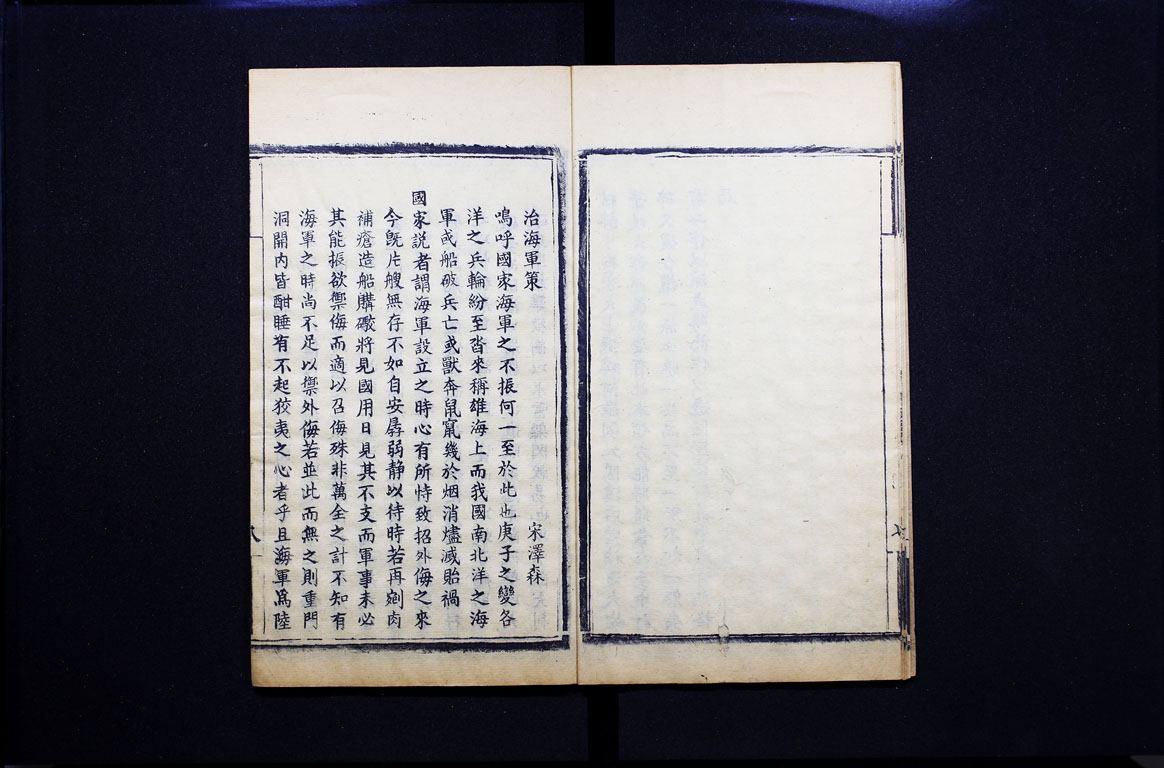 治海軍策
宋澤森
嗚呼國家海軍之不振何一至於此也庚子之變各
洋之兵輪紛至沓來稱雄海上而我國南北洋之海
軍或船破兵亡或獸奔鼠竄幾於烟消燼滅貽禍
國家説者謂海軍設立之時心有所恃致招外侮之來
今既片艘無存不如自安孱弱静以待時若再剜肉
補瘡造船購礮將見國用日見其不支而軍事未必
其能振欲禦侮而適以召侮殊非萬全之計不知有
海軍之時尚不足以禦外侮若並此而無之則重門
洞開内皆酣睡有不起狡夷之心者乎且海軍爲陸
八
七